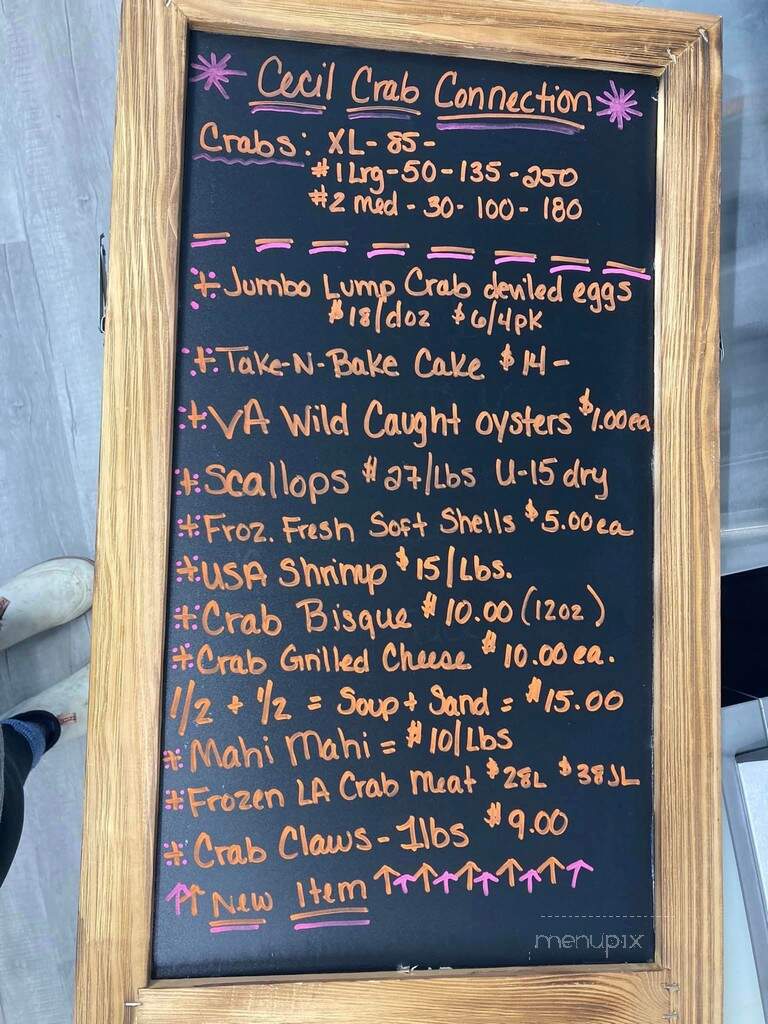 Cecil Crab Connection
Crabs: XL - 85 -
#1 Lrg - 50 - 135 - 250
#2 med - 30 - 100 - 180
Jumbo Lump Crab deviled eggs
$18/doz $6/4pk
Take-N-Bake Cake $14 -
VA Wild Caught oysters $1.00ea
Scallops $27/Lbs U-15 dry
Froz. Fresh Soft Shells $5.00ea
USA Shrimp $15/Lbs.
Crab Bisque $10.00 (12oz)
Crab Grilled Cheese $10.00 ea.
1/2 + 1/2 = Soup + Sand = $15.00
Mahi Mahi = $10/Lbs
Frozen LA Crab Meat $28L $38JL
Crab Claws - 1lbs $9.00
New Item
menupix